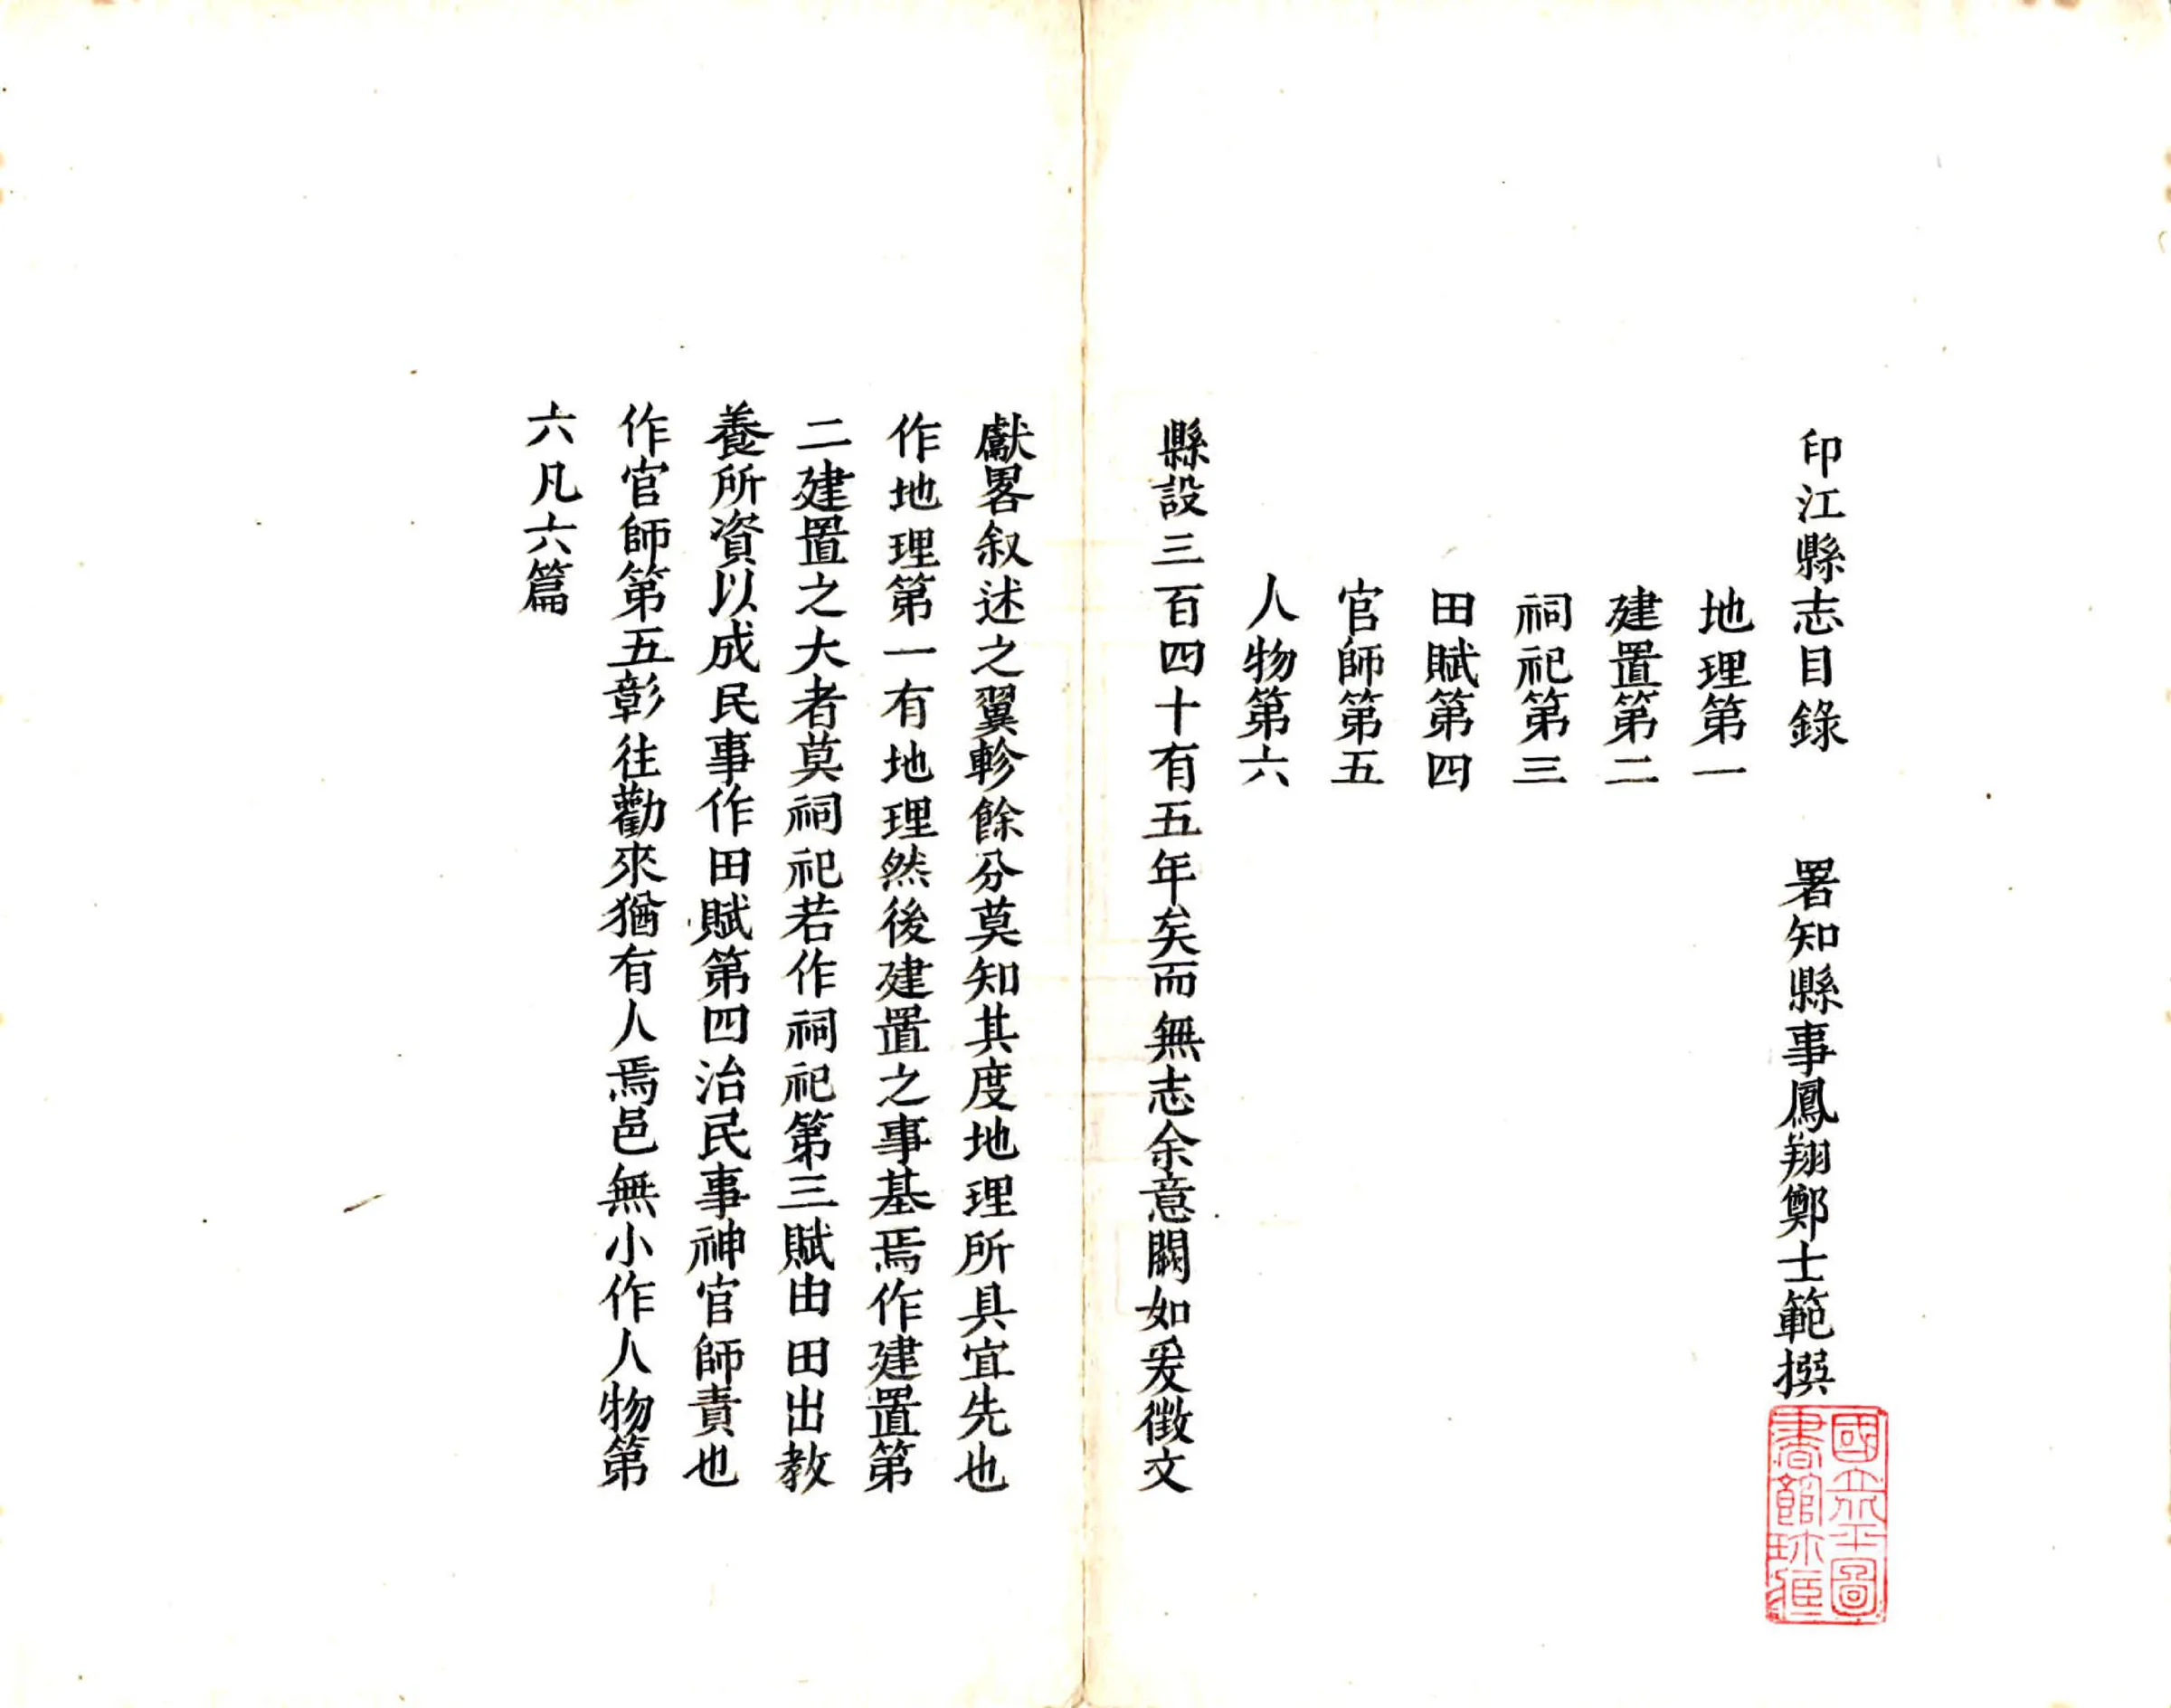 印江縣志目錄　署知縣事鳳翔鄭士範撰
地理第一
建置第二
祠祀第三
田賦第四
官師第五
人物第六
縣設三百四十有五年矣而無志余意闕如爰徵文
獻畧叙述之翼軫餘分莫知其度地理所具宜先也
作地理第一有地理然後建置之事基焉作建置第
二建置之大者莫祠祀若作祠祀第三賦由田出教
養所資以成民事作田賦第四治民事神官師責也
作官師第五彰往勸來猶有人焉邑無小作人物第
六凡六篇
國立北平圖
書館珍藏